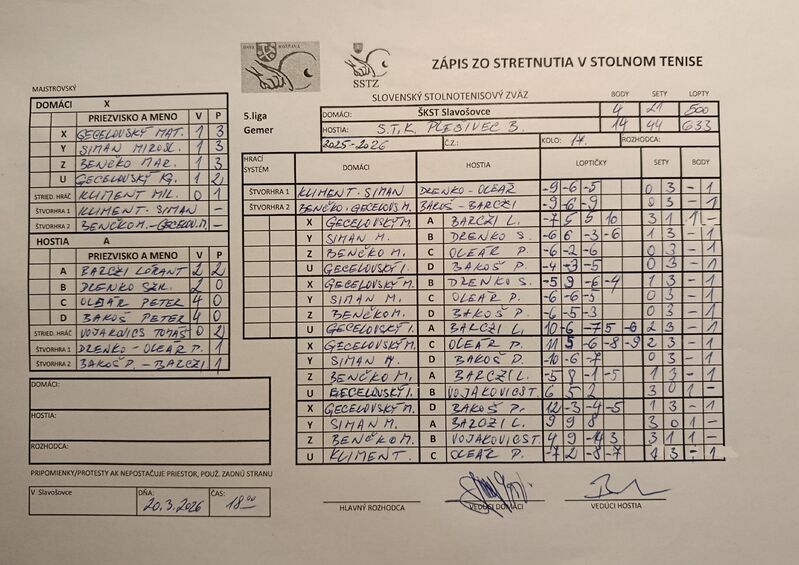 ZÁPIS ZO STRETNUTIA V STOLNOM TENISE
SSTZ
SLOVENSKÝ STOLNOTENISOVÝ ZVÄZ
BODY SETY LOPTY
5.liga
Gemer
DOMÁCI: ŠKST Slavošovce 4 21 500
HOSTIA: S.T.K. PLEŠIVEC B. 14 44 633
2025-2026 Č.Z.: KOLO: 17. ROZHODCA:
MAJSTROVSKÝ
DOMÁCI X
PRIEZVISKO A MENO V P
X GECELOVSKÝ MAT. 1 3
Y SIMAN MIROSL. 1 3
Z BENČKO MAR. 1 3
U GECELOVSKÝ IG. 1 2
STRIED. HRÁČ KLIMENT MIL. 0 1
ŠTVORHRA 1 KLIMENT. SIMAN -
ŠTVORHRA 2 BENČKO M. - GECELOV. M. -
HOSTIA A
PRIEZVISKO A MENO V P
A BARCZI LORANT 2 2
B DRENKO 2 0
C OLEÁR PETER 4 0
D BAKOŠ PETER 4 0
STRIED. HRÁČ VOJAKOVICS TOMÁŠ 0 2
ŠTVORHRA 1 DRENKO - OLEÁR P. 1
ŠTVORHRA 2 BAKOŠ P. - BARCZI 1
DOMÁCI:
HOSTIA:
ROZHODCA:
PRIPOMIENKY/PROTESTY AK NEPOSTAČUJE PRIESTOR, POUŽ. ZADNÚ STRANU
V Slavošovce DŇA: 20.3.2026 ČAS: 18 00
HRACÍ SYSTÉM DOMÁCI HOSTIA LOPTIČKY SETY BODY
ŠTVORHRA 1 KLIMENT - SIMAN DRENKO - OLEÁR -9 -6 -5 0 3 - 1
ŠTVORHRA 2 BENČKO, GECELOVS M. BAKOŠ - BARCZI -9 -6 -9 0 3 - 1
X GECELOVSKÝ M. A BARCZI L. -7 5 6 10 3 1 1 -
Y SIMAN M. B DRENKO S. -6 6 -3 -6 1 3 - 1
Z BENČKO M. C OLEÁR P. -6 -2 -6 0 3 - 1
U GECELOVSKÝ I. D BAKOŠ P. -4 -3 -5 0 3 - 1
X GECELOVSKÝ M. B DRENKO S. -5 9 -6 -4 1 3 - 1
Y SIMAN M. C OLEÁR P. -6 -6 -5 0 3 - 1
Z BENČKO M. D BAKOŠ P. -6 -5 -3 0 3 - 1
U GECELOVSKÝ I. A BARCZI L. 10 -6 -7 5 -6 2 3 - 1
X GECELOVSKÝ M. C OLEÁR P. 11 5 -6 -8 -9 2 3 - 1
Y SIMAN M. D BAKOŠ P. -10 -6 -7 0 3 - 1
Z BENČKO M. A BARCZI L. -5 8 -1 -5 1 3 - 1
U GECELOVSKÝ I. B VOJAKOVICS T. 6 5 2 3 0 1 -
X GECELOVSKÝ M. D BAKOŠ P. 12 -3 -4 -5 1 3 - 1
Y SIMAN M. A BARCZI L. 9 9 8 3 0 1 -
Z BENČKO M. B VOJAKOVICS T. 4 9 -14 3 3 1 1 -
U KLIMENT. C OLEÁR P. -7 2 -8 -7 1 3 - 1
HLAVNÝ ROZHODCA VEDÚCI DOMÁCI VEDÚCI HOSTIA